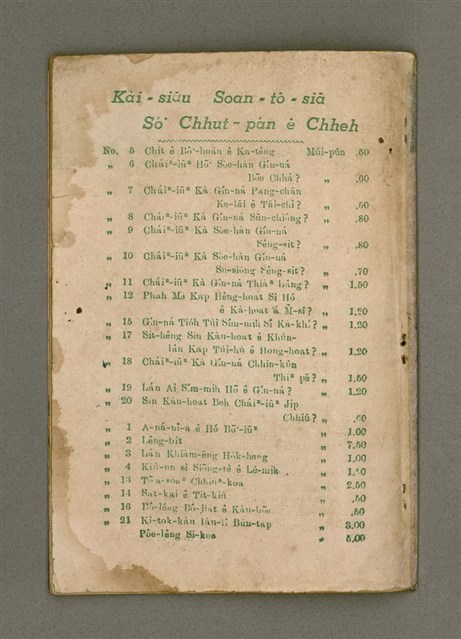 Kài - siāu Soan - tō - siā
Só͘ Chhut - pán ê Chheh
No. 5 Chit ê Bô͘-hoān ê Ka-têng Múi-pún .50
„ 6 Cháiⁿ-iūⁿ Hō͘ Sòe-hàn Gín-ná
Bōe Chhá? „ .60
„ 7 Cháiⁿ-iūⁿ Kà Gín-ná Pang-chān
Ke-lāi ê Tāi-chì? „ .50
„ 8 Cháiⁿ-iūⁿ Kà Gín-ná Sūn-chiông? „ .80
„ 9 Cháiⁿ-iūⁿ Kà Sòe-hàn Gín-ná
Sêng-sit? „ .80
„ 10 Cháiⁿ-iūⁿ Kà Sòe-hàn Gín-ná
Su-sióng Sêng-sit? „ .70
„ 11 Cháiⁿ-iūⁿ Kà Gín-ná Thiàⁿ Lâng? „ 1.50
„ 12 Phah Mā Kap Hêng-hoat Sī Hó
ê Kà-hoat á M̄-sī? „ 1.20
„ 15 Gín-ná Tio̍h Tùi Sím-mih Sî Kà-khí? „ 1.20
„ 17 Si̍t-hêng Sin Kàu-hoat ê Khùn-
lân Kap Tùi-hù ê Hong-hoat? „ 1.20
„ 18 Cháiⁿ-iūⁿ Kà Gín-ná Chhin-kūn
Thiⁿ pē? „ 1.50
„ 19 Lán Ài Sím-mih Hō͘ ê Gín-ná? „ 1.20
„ 20 Sin Kàu-hoat Beh Cháiⁿ-iūⁿ Ji̍p
Chhiú? „ .60
„ 1 A-ná-nî-a ê Hō͘ Bó͘-iūⁿ „ 1.00
„ 2 Lêng-bīt „ 7.50
„ 3 Lán Khiàm-ēng Ho̍k-hong „ 1.00
„ 4 sī Siōng-tè ê Lé-mi̍h „
„ 13 „ 2.50
„ 14 Sat-kai ê Tit-kiù „ .50
„ 16 „ .50
„ 21 Ki-tok-kàu Iàu-lí Būn-tap „ 3.00
Pōe-lêng Si-koa „ 5.00